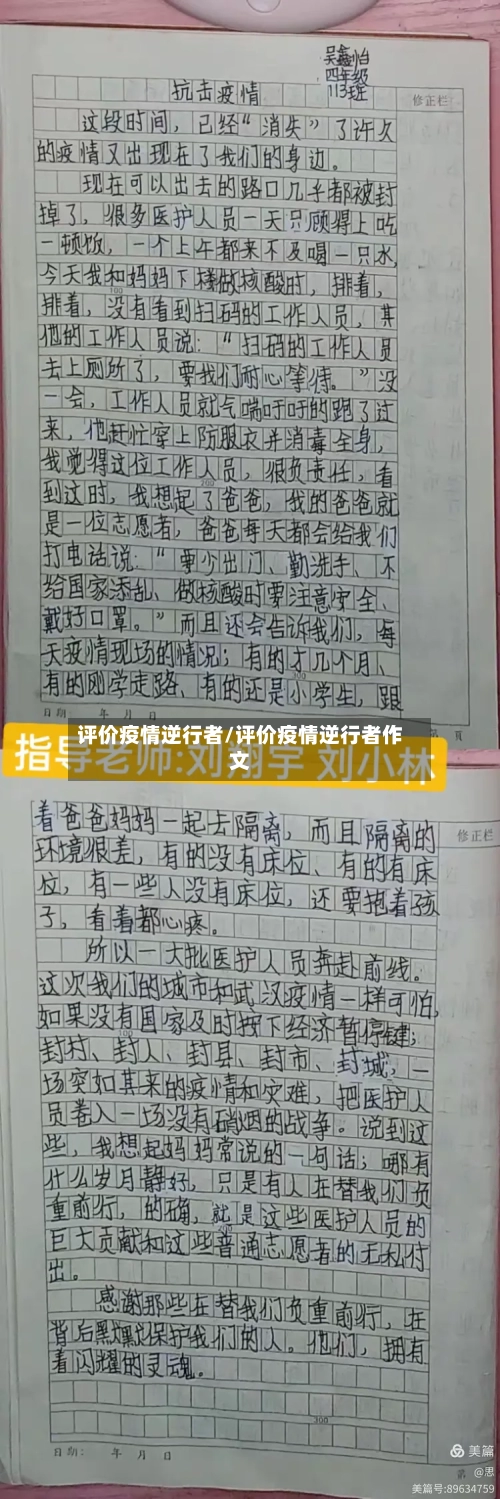 吴鑫怡
四年级
113班
抗击疫情
修正栏
这段时间，已经“消失”了许久
的疫情又出现在了我们的身边。
现在可以出去的路口几乎都被封
掉了，很多医护人员一天只顾得上吃
一顿饭，一个上午都来不及喝一只水，
今天我和妈妈下楼做核酸时，排着，
100
排着，没有看到扫码的工作人员，其
他的工作人员说：“扫码的工作人员
去上厕所了，要我们耐心等待。”没
一会，工作人员就气喘吁吁的跑了过
来，他赶忙穿上防服衣并消毒全身，
我觉得这位工作人员，很负责任，看
200
到这时，我想起了爸爸，我的爸爸就
是一位志愿者，爸爸每天都会给我们
打电话说：“要少出门、勤洗手、不
给国家添乱、做核酸时要注意安全、
戴好口罩。”而且还会告诉我们，每
天疫情现场的情况；有的才几个月、
300
有的刚学走路、有的还是小学生，跟
日期： 年 月 日
页
评价疫情逆行者/评价疫情逆行者作
文
指导老师:刘翔宇 刘小林
修正栏
着爸爸妈妈一起去隔离，而且隔离的
环境很差，有的没有床位、有的有床
位，有一些人没有床位，还要抱着孩
子，看着都心疼。
所以一大批医护人员奔赴前线。
这次我们的城市和武汉疫情一样可怕，
如果没有国家及时按下经济暂停键；
100
封村、封人、封县、封市、封城，一
场突如其来的疫情和灾难，把医护人
员卷入一场没有硝烟的战争。说到这
些，我想起妈妈常说的一句话；哪有
什么岁月静好，只是有人在替我们负
重前行，的确，就是这些医护人员的
200
巨大贡献和这些普通志愿者的无私付
出。
感谢那些在替我们负重前行，在
背后默默保护我们的人。他们，拥有
着闪耀的灵魂。
300
日期： 年 月 日
第
美篇
@思
美篇号:89634759